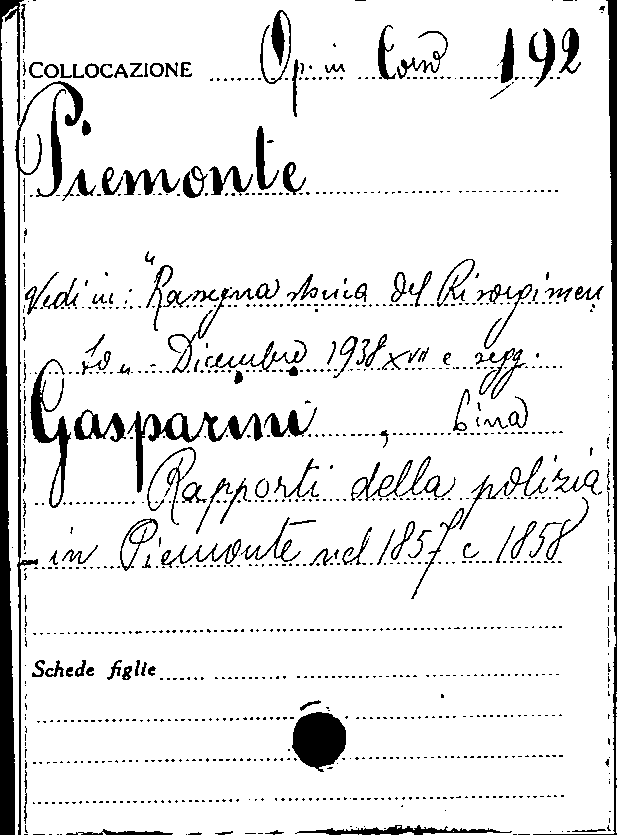 COLLOCAZIONE Op. in Corso 192
Piemonte
Vedi in: "Rassegna storica del Risorgimen
to" - Dicembre 1938 XVII e segg.
Gasparini, Lina
Rapporti della polizia
in Piemonte nel 1857 e 1858
Schede figlie